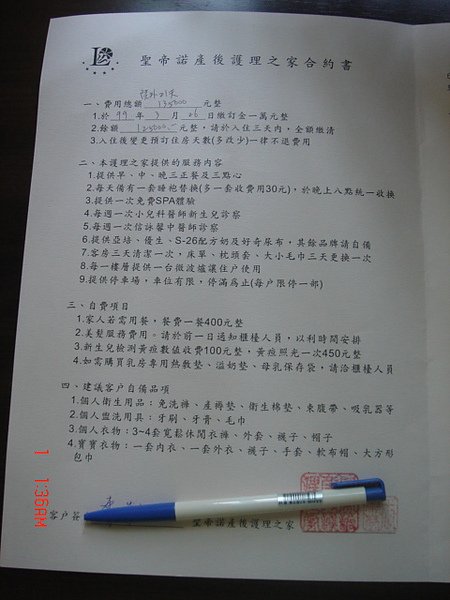 聖帝諾產後護理之家合約書
一、費用總額 135000 元整
1.於 99 年 3 月 26 日繳訂金一萬元整
2.餘額 125000.- 元整，請於入住三天內，全額繳清
3.入住後變更預訂住房天數(多改少)一律不退費用
二、本護理之家提供的服務內容
1.提供早、中、晚三正餐及三點心
2.每天備有一套睡袍替換(多一套收費用30元)，於晚上八點統一收換
3.提供一次免費SPA體驗
4.每週一次小兒科醫師新生兒診察
5.每週一次信詠馨中醫師診察
6.提供亞培、優生、S-26配方奶及好奇尿布，其餘品牌請自備
7.客房三天清潔一次，床單、枕頭套、大小毛巾三天更換一次
8.每一樓層提供一台微波爐讓住戶使用
9.提供停車場，車位有限，停滿為止(每戶限停一部)
三、自費項目
1.家人若需用餐，餐費一餐400元整
2.美髮服務費用。請於前一日通知櫃檯人員，以利時間安排
3.新生兒檢測黃疸數值收費100元整，黃疸照光一次450元整
4.如需購買乳房專用熱敷墊、溢奶墊、母乳保存袋，請洽櫃檯人員
四、建議客戶自備品項
1.個人衛生用品：免洗褲、產褥墊、衛生棉墊、束腹帶、吸乳器等
2.個人盥洗用具：牙刷、牙膏、毛巾
3.個人衣物：3~4套寬鬆休閒衣褲、外套、襪子、帽子
4.寶寶衣物：一套內衣、一套外衣、襪子、手套、軟布帽、大方形
包巾
客戶簽
聖帝諾產後護理之家
1 1:36AM